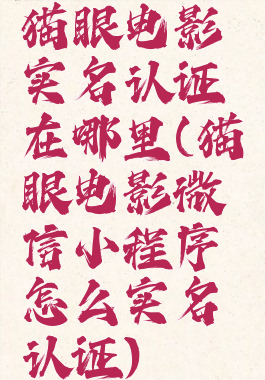 猫眼电影
实名认证
在哪里(猫
眼电影微
信小程序
怎么实名
认证)